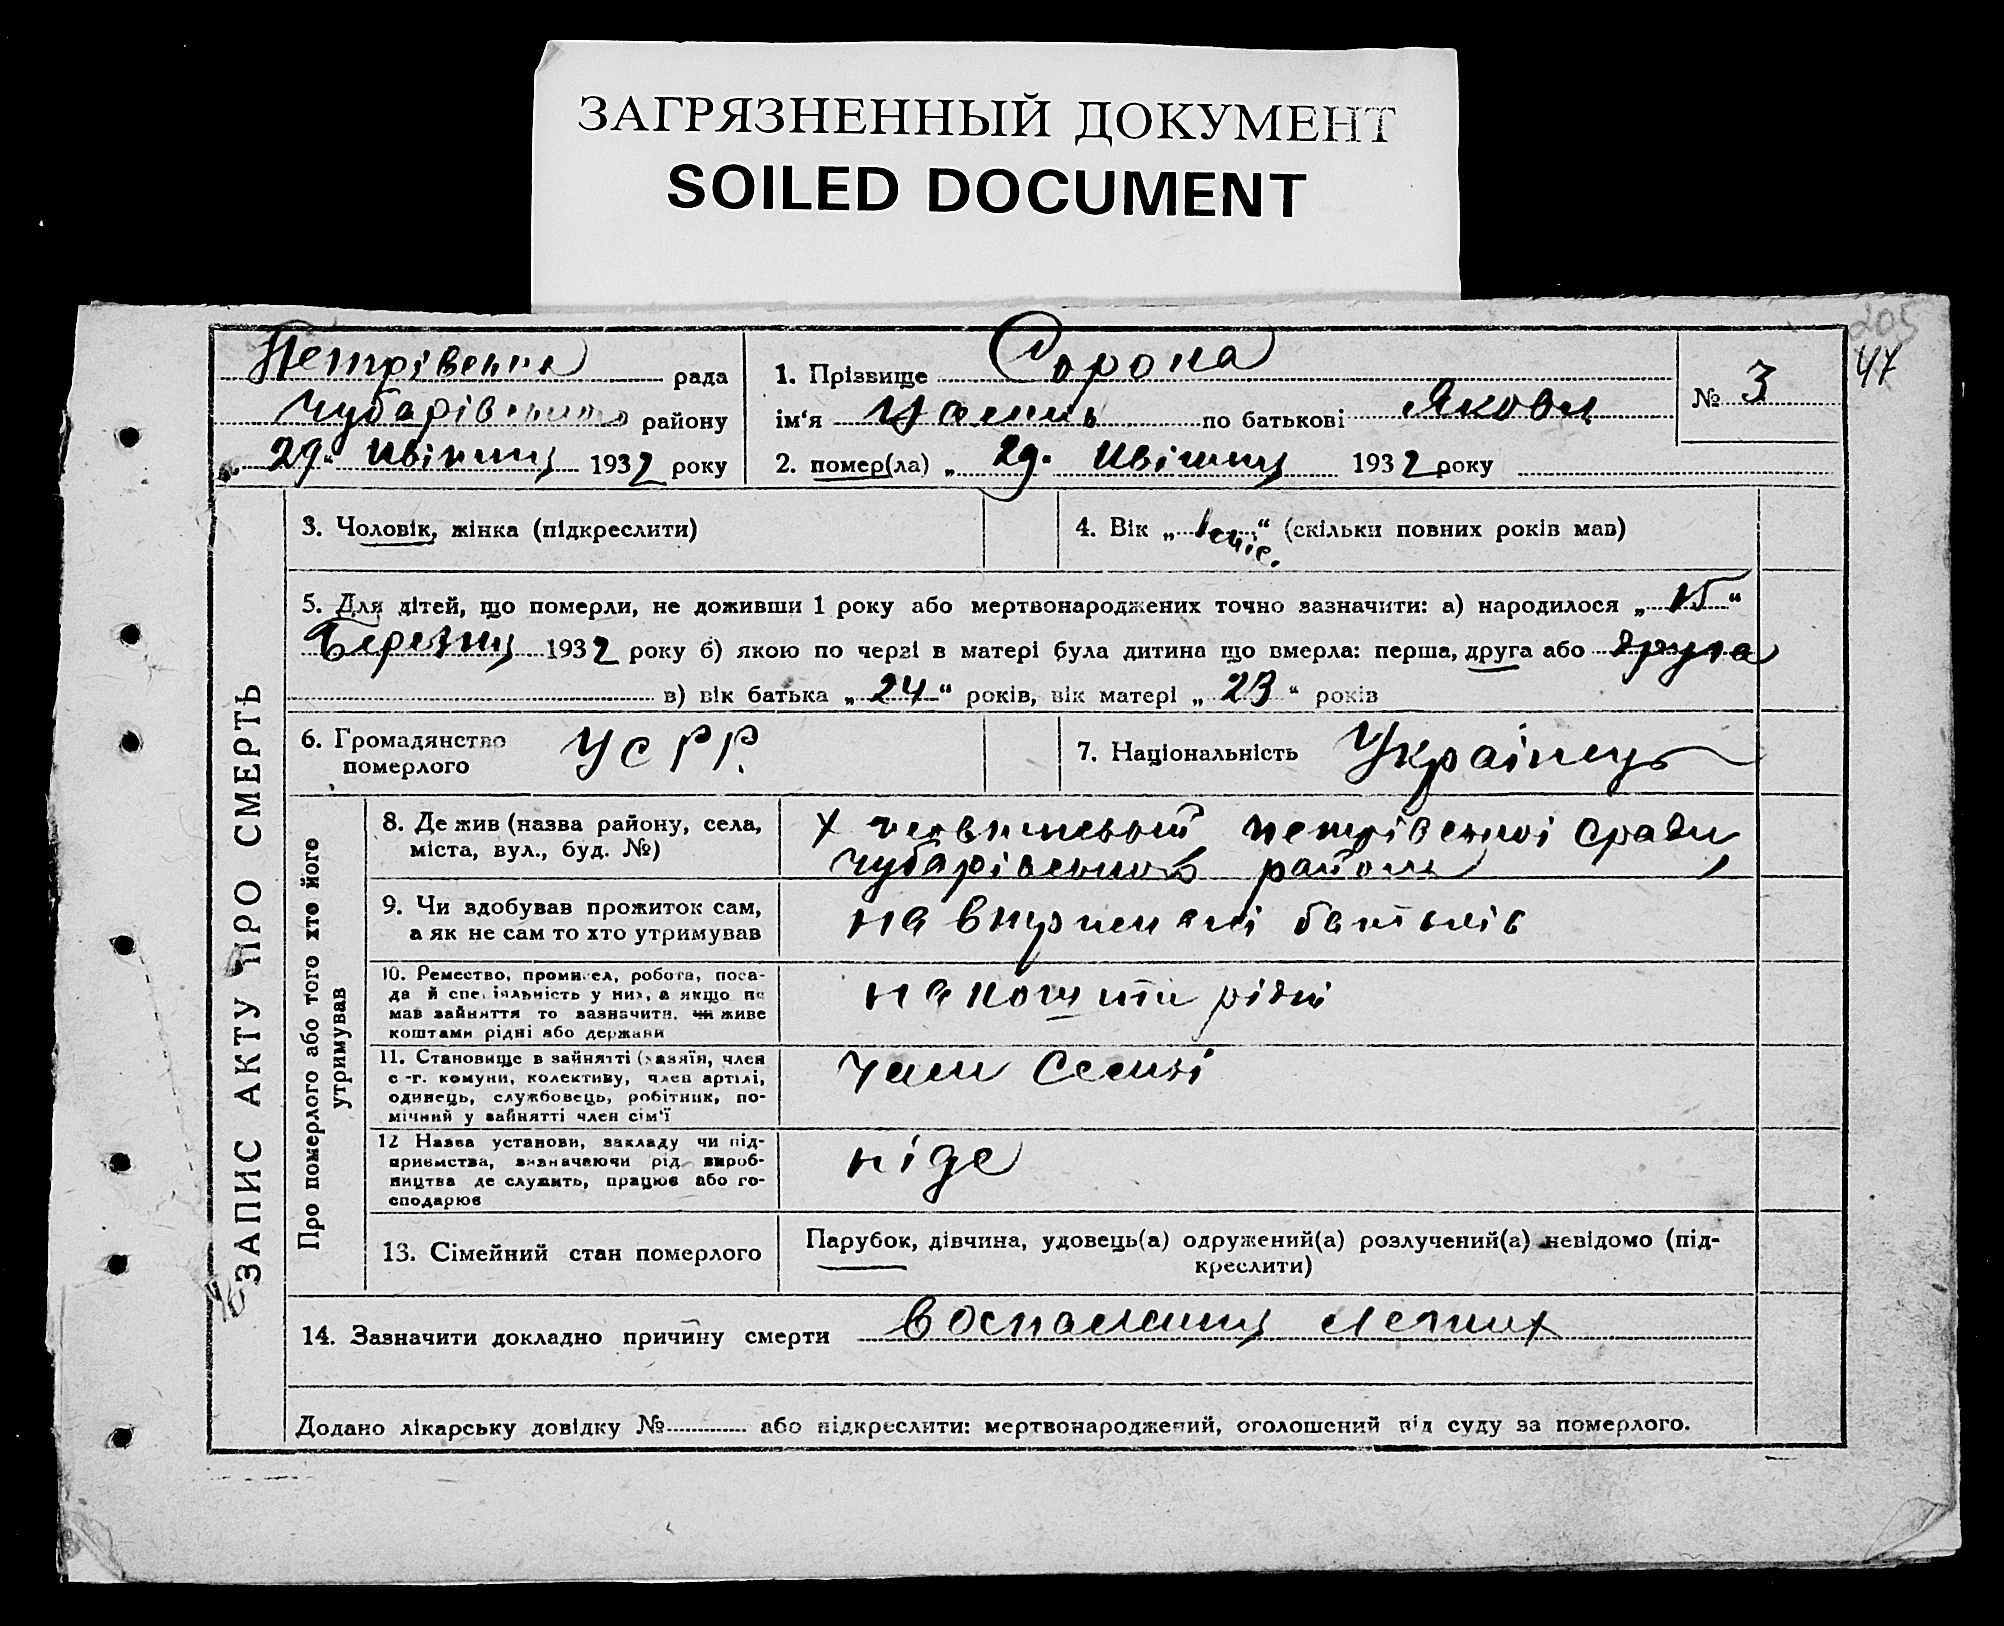 ЗАГРЯЗНЕННЫЙ ДОКУМЕНТ
SOILED DOCUMENT
205
47
Петрівська рада
Чубарівського району
„29“ Квітня 1932 року
1. Прізвище Сорока
ім‘я по батькові Якови
2. помер(ла) „29“ Квітня 1932 року
№ 3
ЗАПИС АКТУ ПРО СМЕРТЬ
3. Чоловік, жінка (підкреслити)
4. Вік „1 “ (скільки повних років мав)
5. Для дітей, що померли, не доживши 1 року або мертвонароджених точно зазначити: а) народилося „15“
Березня 1932 року б) якою по черзі в матері була дитина що вмерла: перша, друга або друга
в) вік батька „24“ років, вік матері „23“ років
6. Громадянство
померлого
УСРР.
7. Національність Українець
Про померлого або того хто його
утримував
8. Де жив (назва району, села,
міста, вул., буд. №)
Х петрівської сради
чубарівського району
9. Чи здобував прожиток сам,
а як не сам то хто утримував
на батьків
10. Ремество, промисел, робота, поса-
да й спеціяльність у них, а якщо не
мав зайняття то зазначити, чи живе
коштами рідні або держави
на кошти рідні
11. Становище в зайнятті (хазяїн, член
с.-г. комуни, колективу, член артілі,
одинець, службовець, робітник, по-
мічний у зайнятті член сім'ї
член семї
12 Назва установи, закладу чи під-
приємства, визначаючи рід вироб-
ництва де служить, працює або го-
сподарює
ніде
13. Сімейний стан померлого
Парубок, дівчина, удовець(а) одружений(а) розлучений(а) невідомо (під-
креслити)
14. Зазначити докладно причину смерти воспаления легких
Додано лікарську довідку № або підкреслити: мертвонароджений, оголошений від суду за померлого.